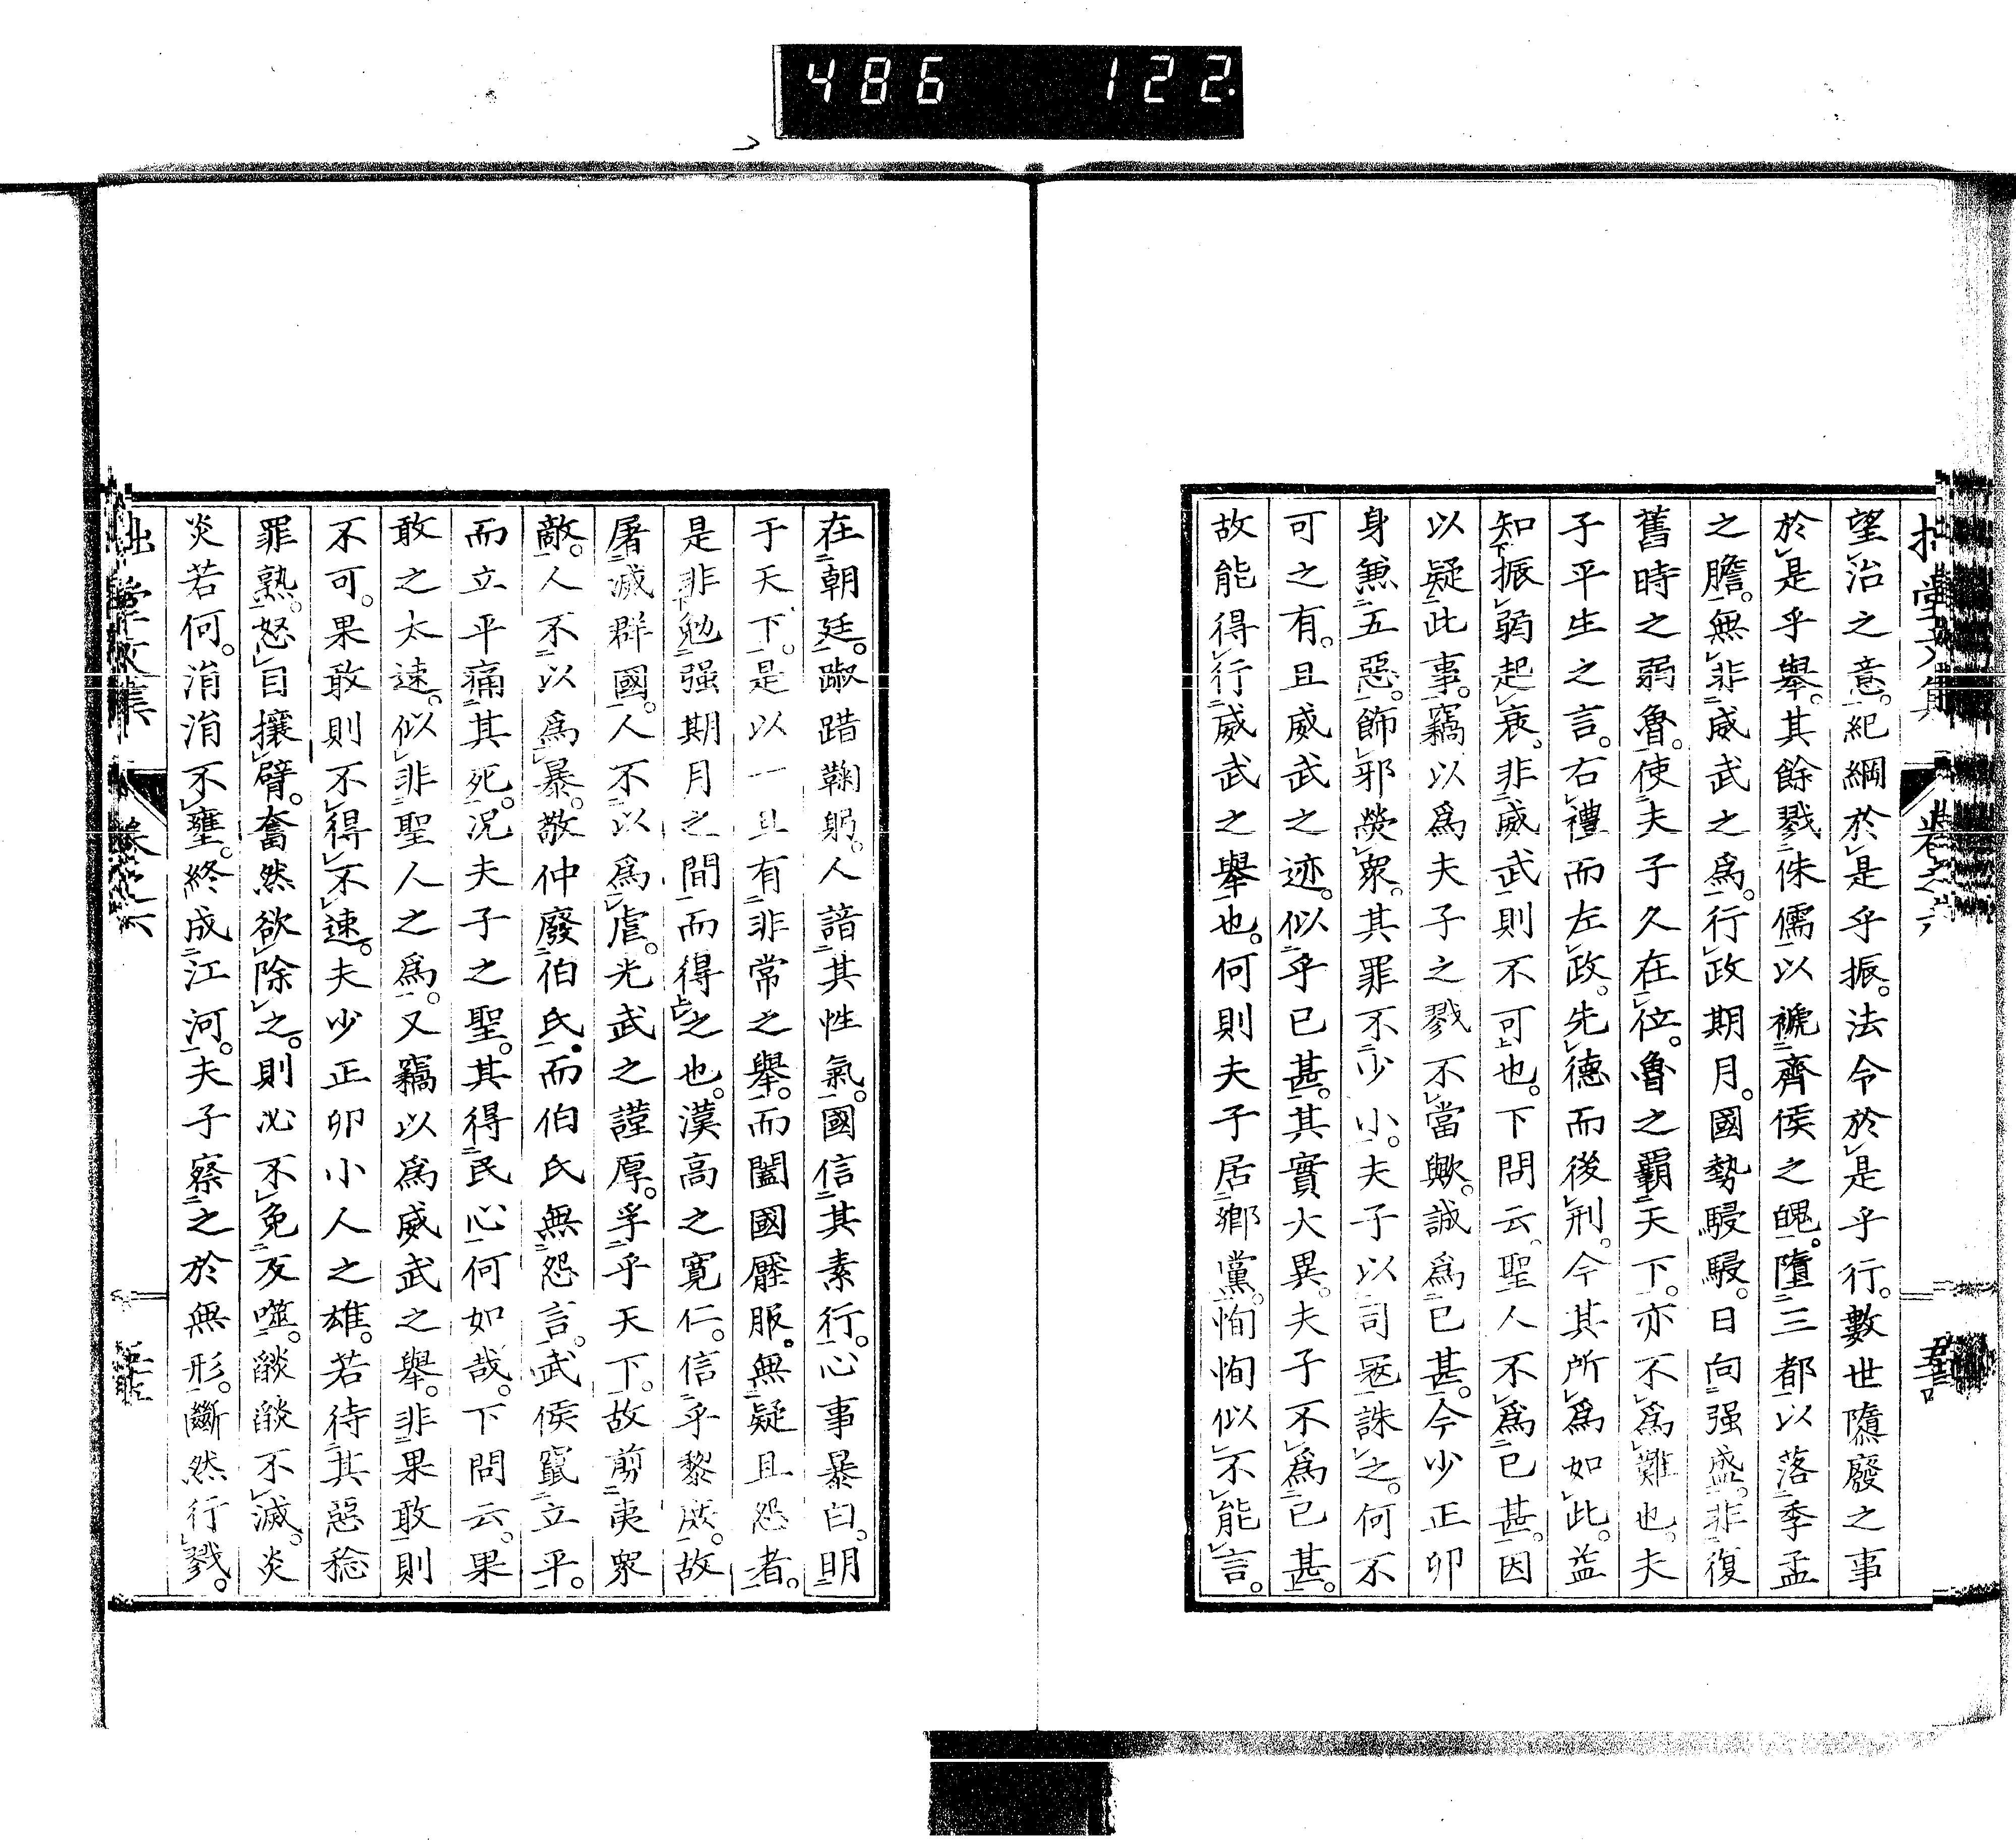 486 122
望治之意。紀綱於是乎振。法令於是乎行。數世隳廢之事
於是乎舉。其餘戮侏儒以褫齊侯之魄。墮三都以落季孟
之膽。無非威武之爲。行政期月。國勢駸駸。日向强盛。非復
舊時之弱魯。使夫子久在位。魯之霸天下。亦不爲難也。夫
子平生之言。右禮而左政。先德而後刑。今其所爲如此。益
知振弱起衰。非威武則不可也。下問云、聖人不爲已甚。因
以疑此事。竊以爲夫子之戮不當歟。誠爲已甚。今少正卯
身兼五惡。飾邪熒衆。其罪不少小。夫子以司寇誅之。何不
可之有。且威武之迹。似乎已甚。其實大異。夫子不爲已甚。
故能得行威武之舉也。何則夫子居鄉黨。恂恂似不能言。
在朝廷。踧踖鞠躬。人諳其性氣。國信其素行。心事暴白。明
于天下。是以一旦有非常之舉。而闔國壓服。無疑且怨者。
是非勉强期月之間而得之也。漢高之寬仁。信乎黎庶。故
屠滅群國。人不以爲虐。光武之謹厚。孚乎天下。故剪夷衆
敵。人不以爲暴。敬仲廢伯氏。而伯氏無怨言。武侯竄立平。
而立平痛其死。況夫子之聖。其得民心何如哉。下問云。果
敢之太速。似非聖人之爲。又竊以爲威武之舉。非果敢則
不可。果敢則不得不速。夫少正卯小人之雄。若待其惡稔
罪熟。怒目攘臂。奮然欲除之。則必不免反噬。燄燄不滅。炎
炎若何。涓涓不壅。終成江河。夫子察之於無形。斷然行戮。
拙堂文集 卷之六